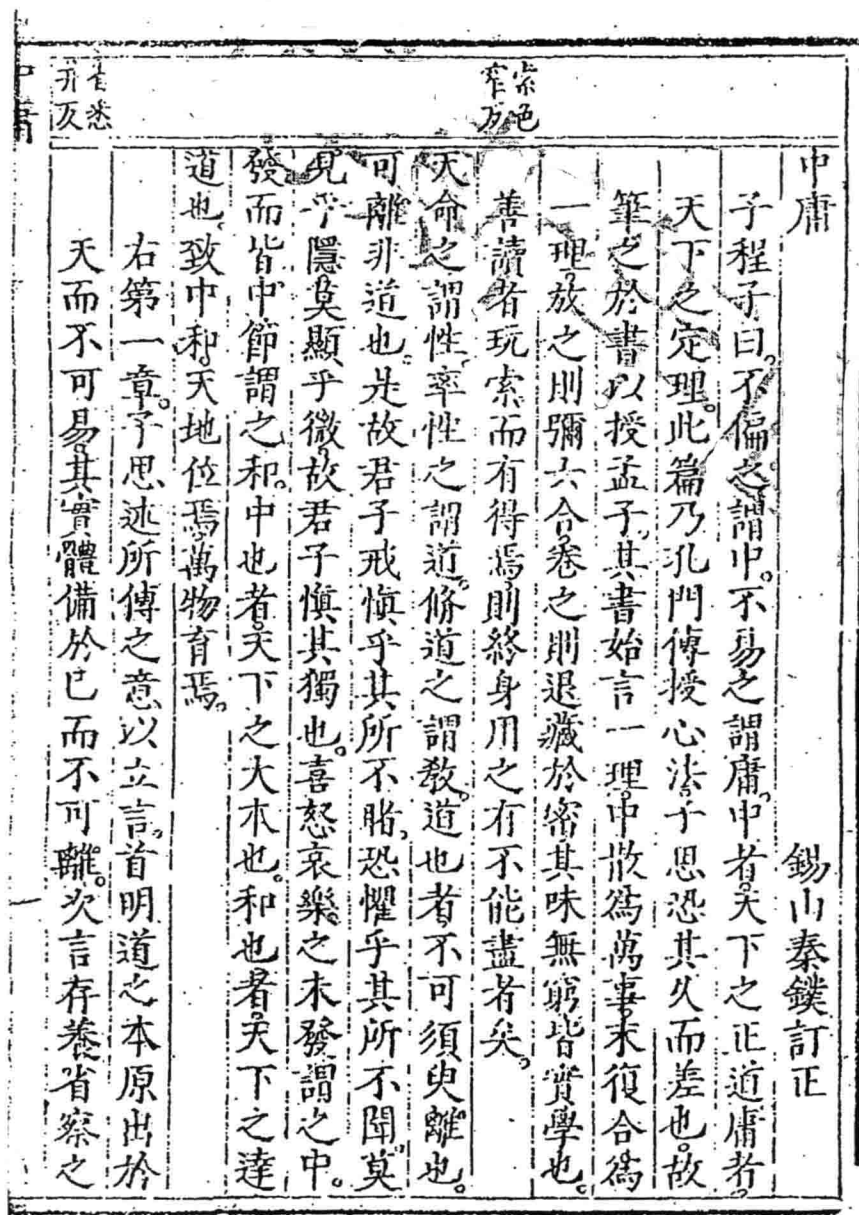 中庸　錫山秦鏷訂正
子程子曰。不偏之謂中。不易之謂庸。中者。天下之正道。庸者。
天下之定理。此篇乃孔門傳授心法。子思恐其久而差也。故
筆之於書以授孟子。其書始言一理。中散爲萬事。末復合爲
一理。放之則彌六合。卷之則退藏於密。其味無窮。皆實學也。
善讀者玩索而有得焉。則終身用之有不能盡者矣。
天命之謂性。率性之謂道。脩道之謂敎。道也者。不可須臾離也。
可離非道也。是故君子戒愼乎其所不睹。恐懼乎其所不聞。莫
見乎隱。莫顯乎微。故君子愼其獨也。喜怒哀樂之未發謂之中。
發而皆中節謂之和。中也者。天下之大本也。和也者。天下之達
道也。致中和。天地位焉。萬物育焉。
右第一章。子思述所傳之意以立言。首明道之本原出於
天而不可易。其實體備於已而不可離。次言存養省察之
索色
窄反
省悉
井反
中庸
一